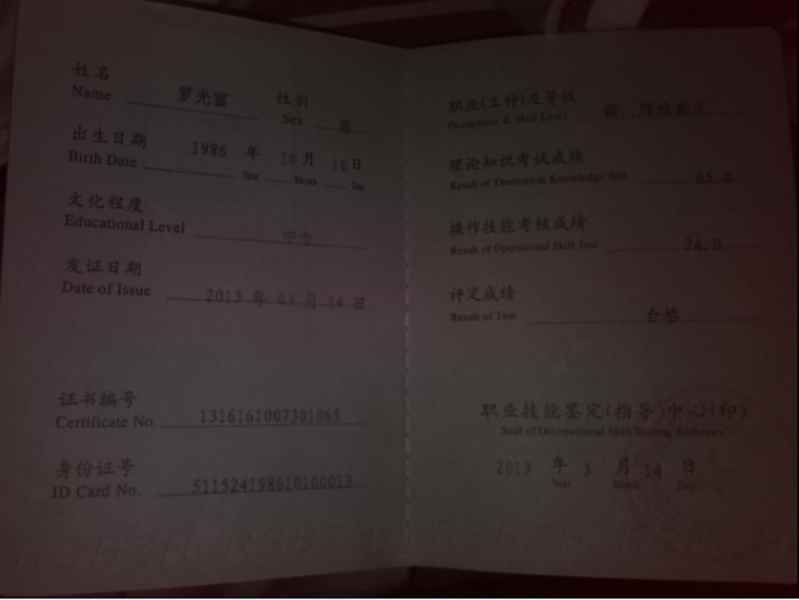 姓名 罗光富 性别 男
Name Sex
出生日期 1986 年 10 月 10 日
Birth Date Year Month Day
文化程度
Educational Level
发证日期 2013 年 03 月 14 日
Date of Issue
证书编号
Certificate No. 1316161007301065
身份证号
ID Card No.
职业(工种)及等级
Occupation & Skill Level
理论知识考试成绩
Result of Theoretical Knowledge Test
操作技能考核成绩
Result of Operational Skill Test
评定成绩 合格
Result of Test
职业技能鉴定(指导)中心(印)
Seal of Occupational Skill Testing Authority
2013 年 3 月 14 日
Year Month Day